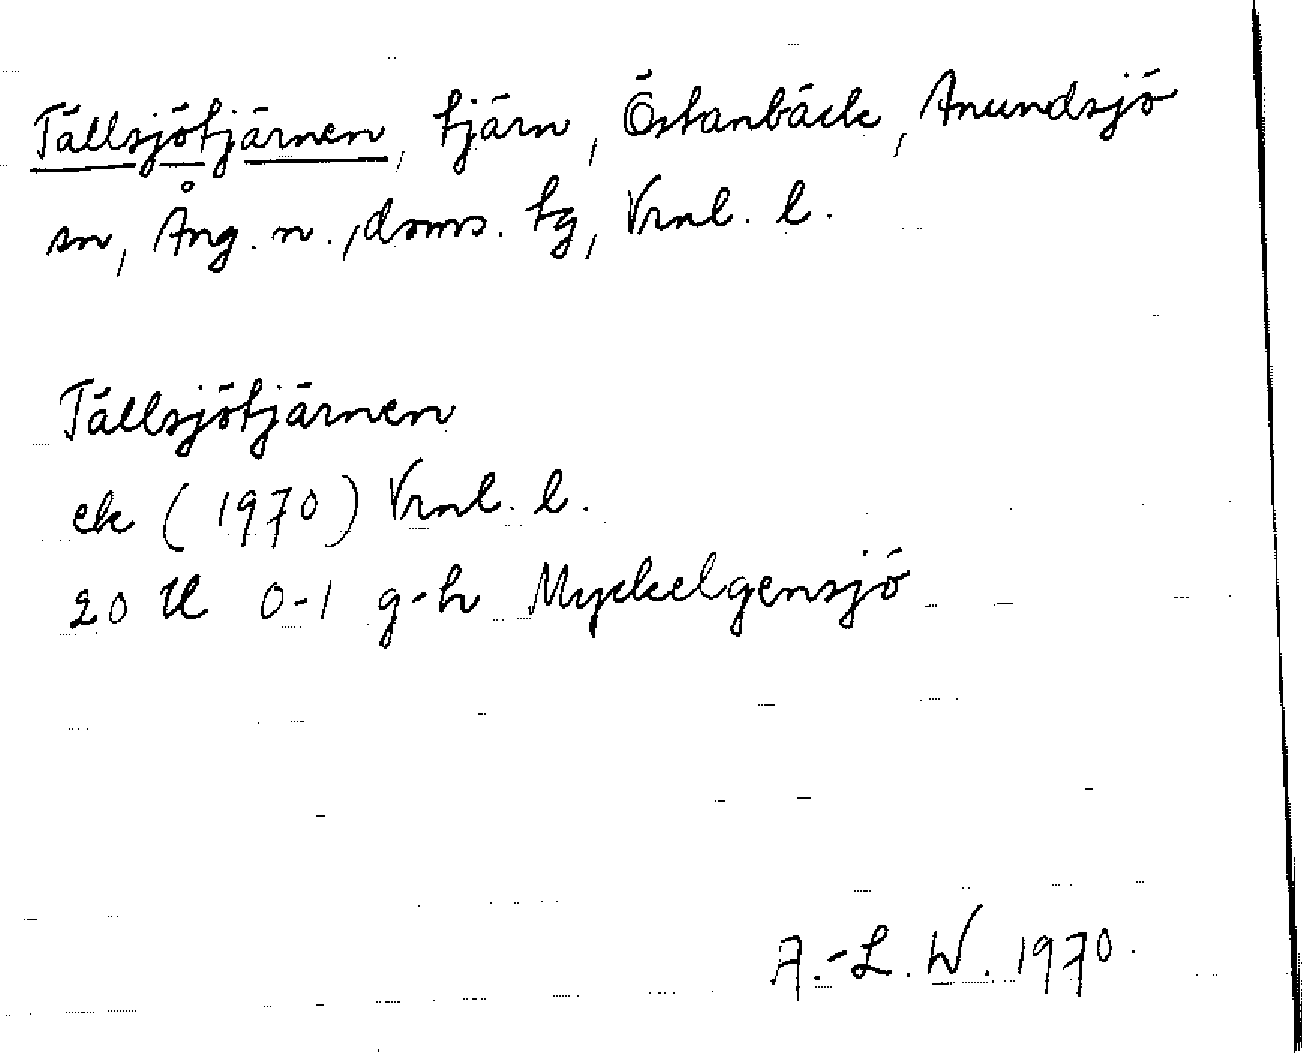 Tällsjötjärnen, tjärn, Östanbäck, Anundsjö
sn, Ång. n., doms. tg, Vrnl. l.
Tällsjötjärnen
ek (1970) Vrnl. l.
20 H 0-1 g-h Myckelgensjö
A.-L. W. 1970.